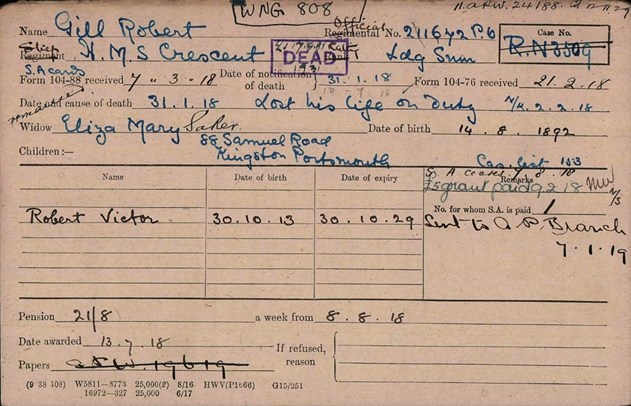 WNG 808
Name Gill Robert Official Regimental No. 211642 P.O Case No.
Ship Regiment H.M.S Crescent DEAD Ldg Smn R.N 3509
S.A ceases
Form 104-88 received 7 . 3 . 18 Date of notification of death } 31 . 1 . 18 Form 104-76 received 21 . 2 . 18
Date and cause of death 31. 1. 18 Lost his life on Duty N/M 2. 2. 18
remarried
Widow Eliza Mary Saker Date of birth 14 . 8 . 1892
88 Samuel Road
Children :— Kingston Portsmouth Cas. List 153
S. A ceases 7. 8. 18
Name Date of birth Date of expiry Remarks
£5 grant paid 9 2 18
No. for whom S.A. is paid 1
Robert Victor 30 . 10 . 13 30 . 10 . 29 Sent to A. P. Branch
7 . 1 . 19
Pension 21/8 a week from 8 . 8 . 18
Date awarded 13 . 7 . 18 If refused, reason
Papers
(9 38 108) W5811—8773 25,000(2) 8/16 HWV(P1666) G15/251
16972—327 25,000 6/17